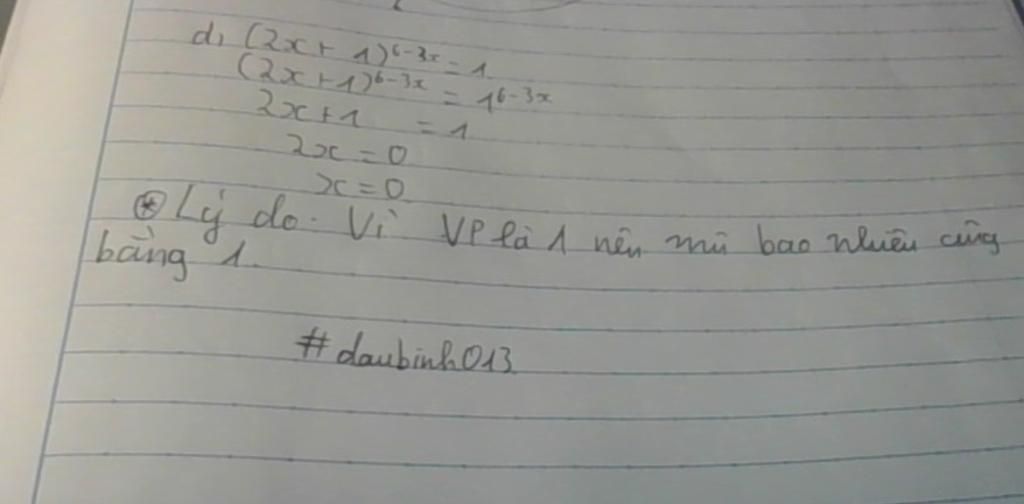 d, (2x + 1)^{6-3x} = 1
(2x+1)^{6-3x} = 1^{6-3x}
2x+1 = 1
2x = 0
x = 0
⊛ Lý do: Vì VP là 1 nên mũ bao nhiêu cũng
bằng 1.
#daubinh013